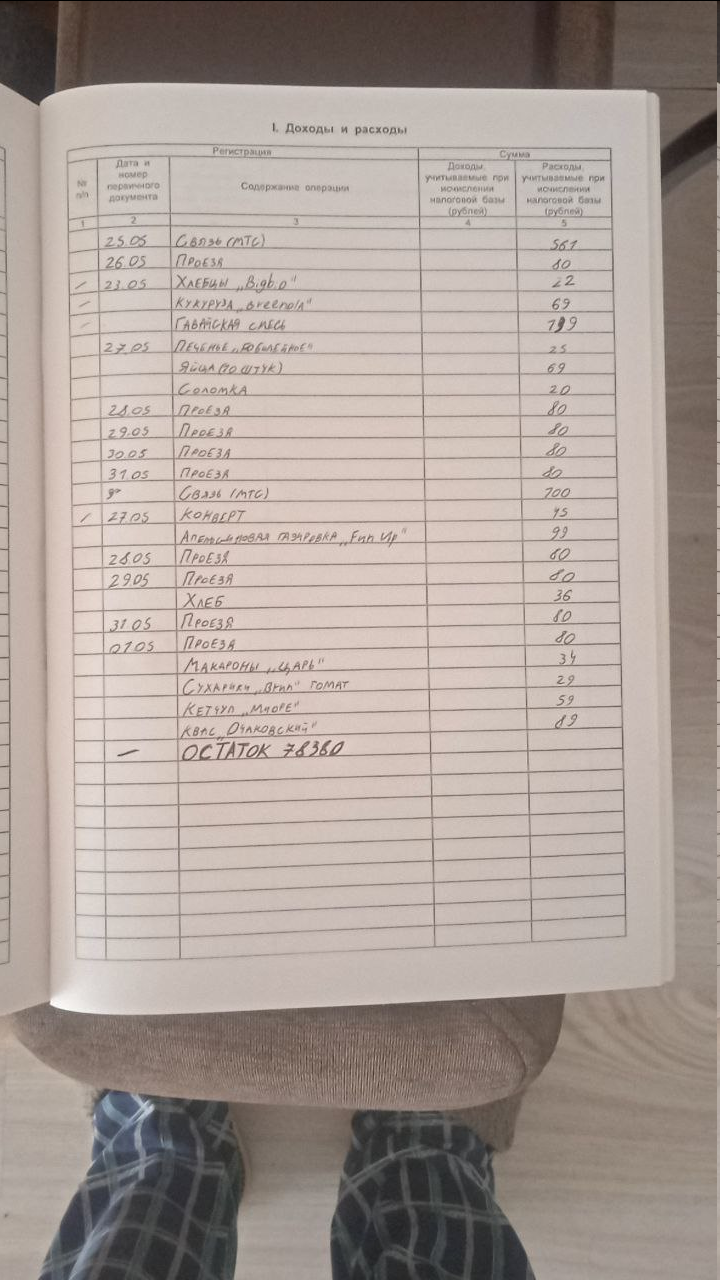 I. Доходы и расходы
Регистрация Сумма
№ п/п Дата и номер первичного документа Содержание операции Доходы, учитываемые при исчислении налоговой базы (рублей) Расходы, учитываемые при исчислении налоговой базы (рублей)
1 2 3 4 5
25.05 Связь (МТС) 561
26.05 Проезд 80
– 23.05 Хлебцы „Bigbio" 22
– Кукуруза 69
– Гавайская смесь
27.05 Печенье „Юбилейное" 25
Яйца (10 штук) 69
Соломка 20
28.05 Проезд 80
29.05 Проезд 80
30.05 Проезд 80
31.05 Проезд 80
Связь (МТС) 700
/ 27.05 Конверт 45
Апельсиновая газировка „Fun Up" 99
28.05 Проезд 80
29.05 Проезд 80
Хлеб 36
31.05 Проезд 80
01.05 Проезд 80
Макароны „Царь" 34
Сухарики томат 29
Кетчуп 59
Квас „Очаковский" 89
— ОСТАТОК 78380